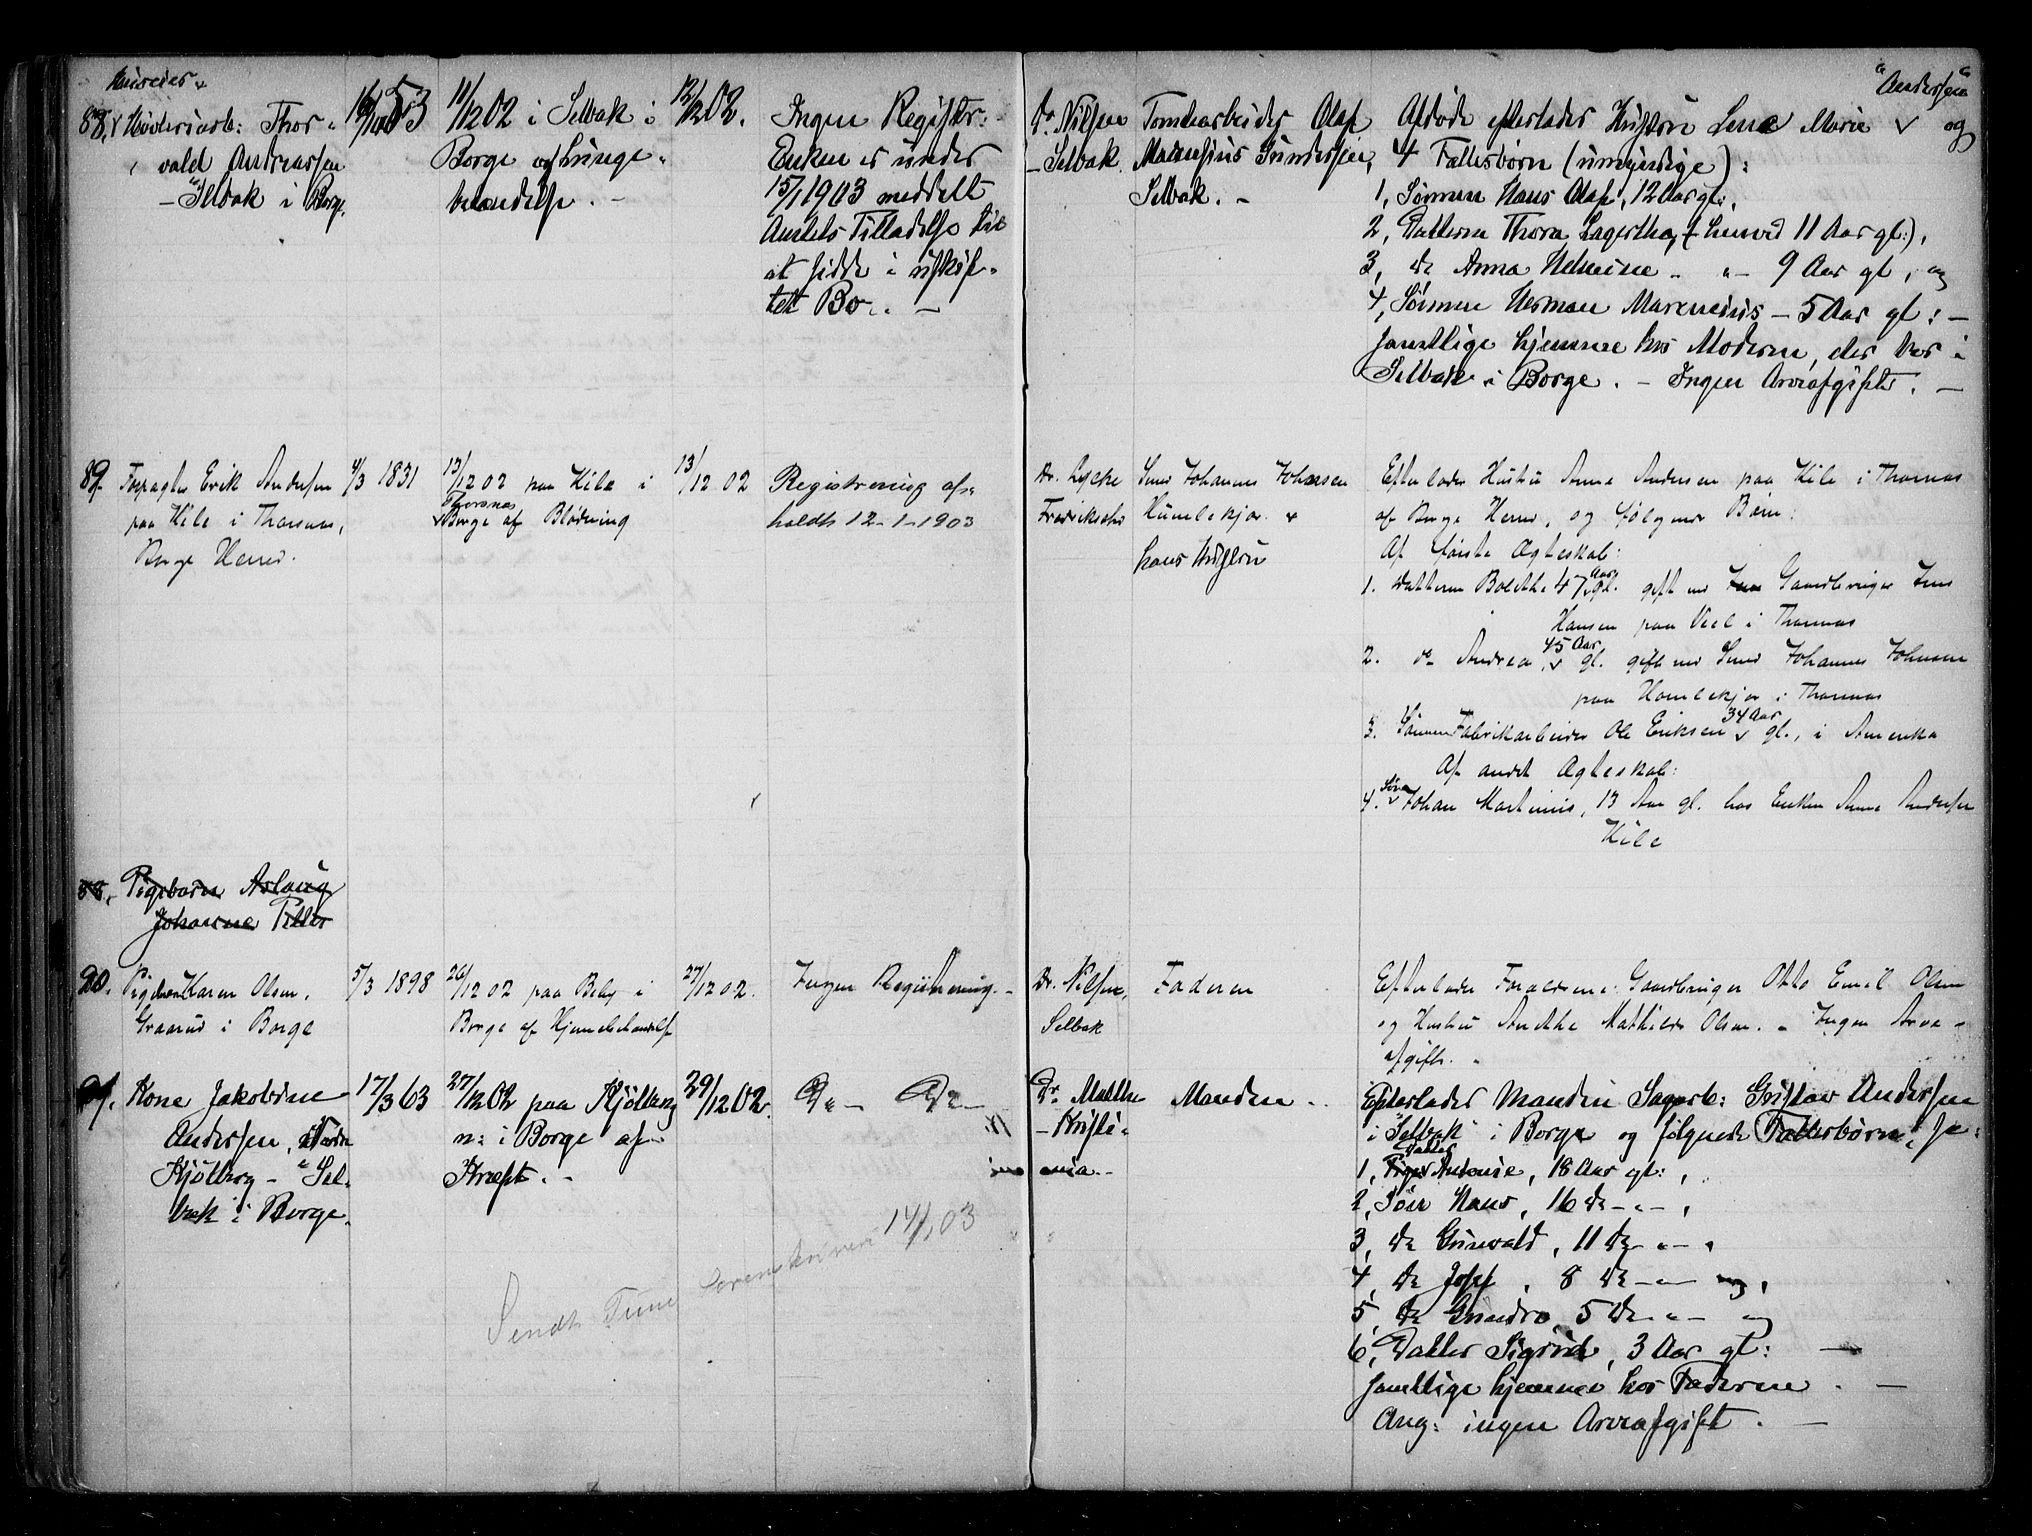 88.
Thor-
vald Andreassen
- Selbak i Borge.
11/12 02 i Selbak i
Borge af Lunge-
betændelse. -
12/12 02.
Ingen Registr:
Enken er under
15/1 1903 meddelt
Amtets Tilladelse til
at sidde i uskif-
tet Bo. -
Dr. Nilsen
- Selbak.
Tomtearbeider Olaf
Gundersen,
Selbak. -
"Andersen"
Afdøde efterlader Hustru Lene Marie v og
4 Fællesbørn (umyndige):
1, Sønnen Hans Olaf, 12 Aar gl:,
2, Datteren Thora Lagertha, 11 Aar gl:),
3, do Anna Helmine - " - 9 Aar gl, og
4, Sønnen Herman Marenius - 5 Aar gl: -
samtlige hjemme hos Moderen, der bor i
Selbak i Borge. - Ingen Arveafgift. -
89.
Forpagter Erik Andersen
paa Kile i Thorsnæs,
Borge Herred.
4/3 1831
13/12 02 paa Kile i
Thorsnæs
Borge af Blødning
13/12 02
Registrering af-
holdt 12-1-1903
Dr. Lycke
Fredrikstad
Smed Johannes Johansen
Humlekjær.
hans Svigersøn
Efterlader Hustru Anne Andersen paa Kile i Thorsnæs
af Borge Herred, og følgende Børn:
Af første Ægteskab:
1. Datteren Bolethe 47 Aar gl. gift med Gaardbruger Jens
Hansen paa Viel i Thorsnæs
2. do Andrea, 45 Aar gl. gift med Smed Johannes Johansen
paa Humlekjær i Thorsnæs
3. Sønnen Fabrikarbeider Ole Eriksen 34 Aar gl., i Amerika
Af andet Ægteskab:
4. Søn Johan Martinius, 13 Aar gl. hos Enken Anne Andersen
Kile
88. Pigebarn Aslaug
Johanne
90.
Pigebarn Karen Olsen,
Graarud i Borge
5/3 1898
26/12 02 paa Beby i
Borge af Hjernebetændelse
27/12 02.
Ingen Registrering. -
Dr. Nilsen,
Selbak
Faderen
Efterlader Forældrene: Gaardbruger Otto Emil Olsen
og Hustru Anethe Mathilde Olsen. - Ingen Arve-
afgift. -
91.
Kone Jakobine
Andersen, Nordre
Kjølberg - "Sel-
bak" i Borge.
17/3 63
27/12 02 paa Kjølberg
n: i Borge af
Kræft. -
29/12 02.
Do - Do -
Dr.
- Kristi-
ania. -
Manden. -
Efterlader Manden Sagarb: Gustav Andersen
i "Selbak" i Borge og følgende Fællesbørn:
1, Datter Antonie, 18 Aar gl:,
2, Søn Hans, 16 do - " - ,
3, do Gunvald, 11 do - " - ,
4, do Josef, 8 do - " -
5, do 5 do - " - og
6, Datter Sigrid, 3 Aar gl: -
samtlige hjemme hos Faderen. -
Ang: ingen Arveafgift. -
Sendt Tune Sorenskriveri 14/1 03